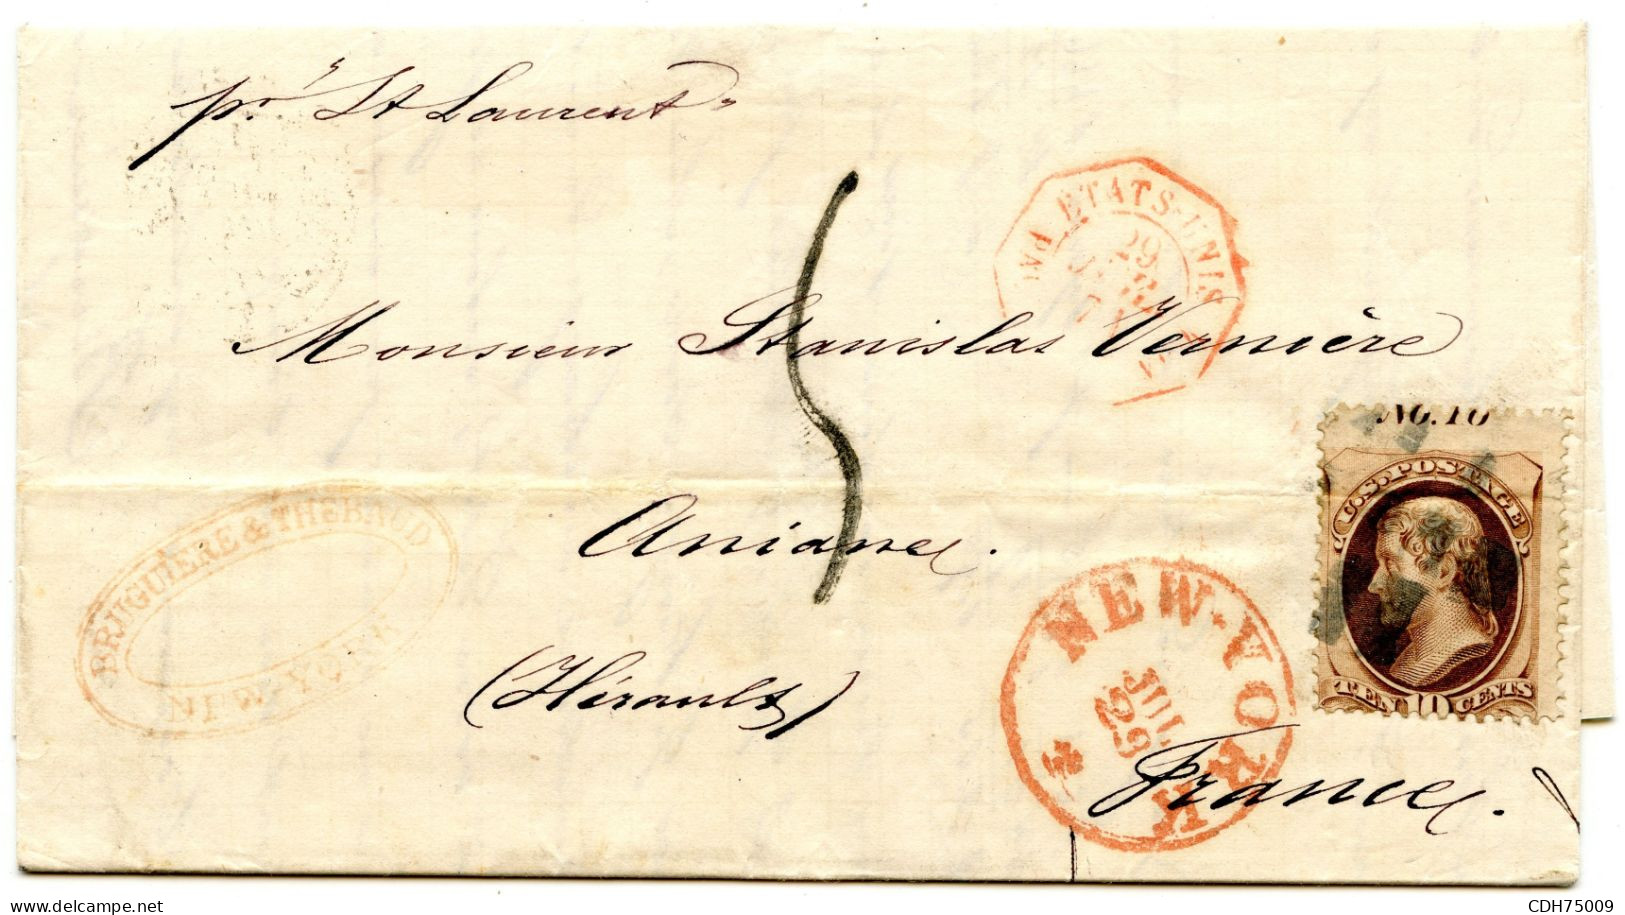 pr "St Laurent"
ETATS-UNIS
29
Monsieur Stanislas Vernière
NO. 10
U.S. POSTAGE
BRUGUIERE & THEBAUD
NEW-YORK
Aniane.
5
NEW-YORK
JUL
29
TEN 10 CENTS
(Hérault)
France.
delcampe.net
CDH75009